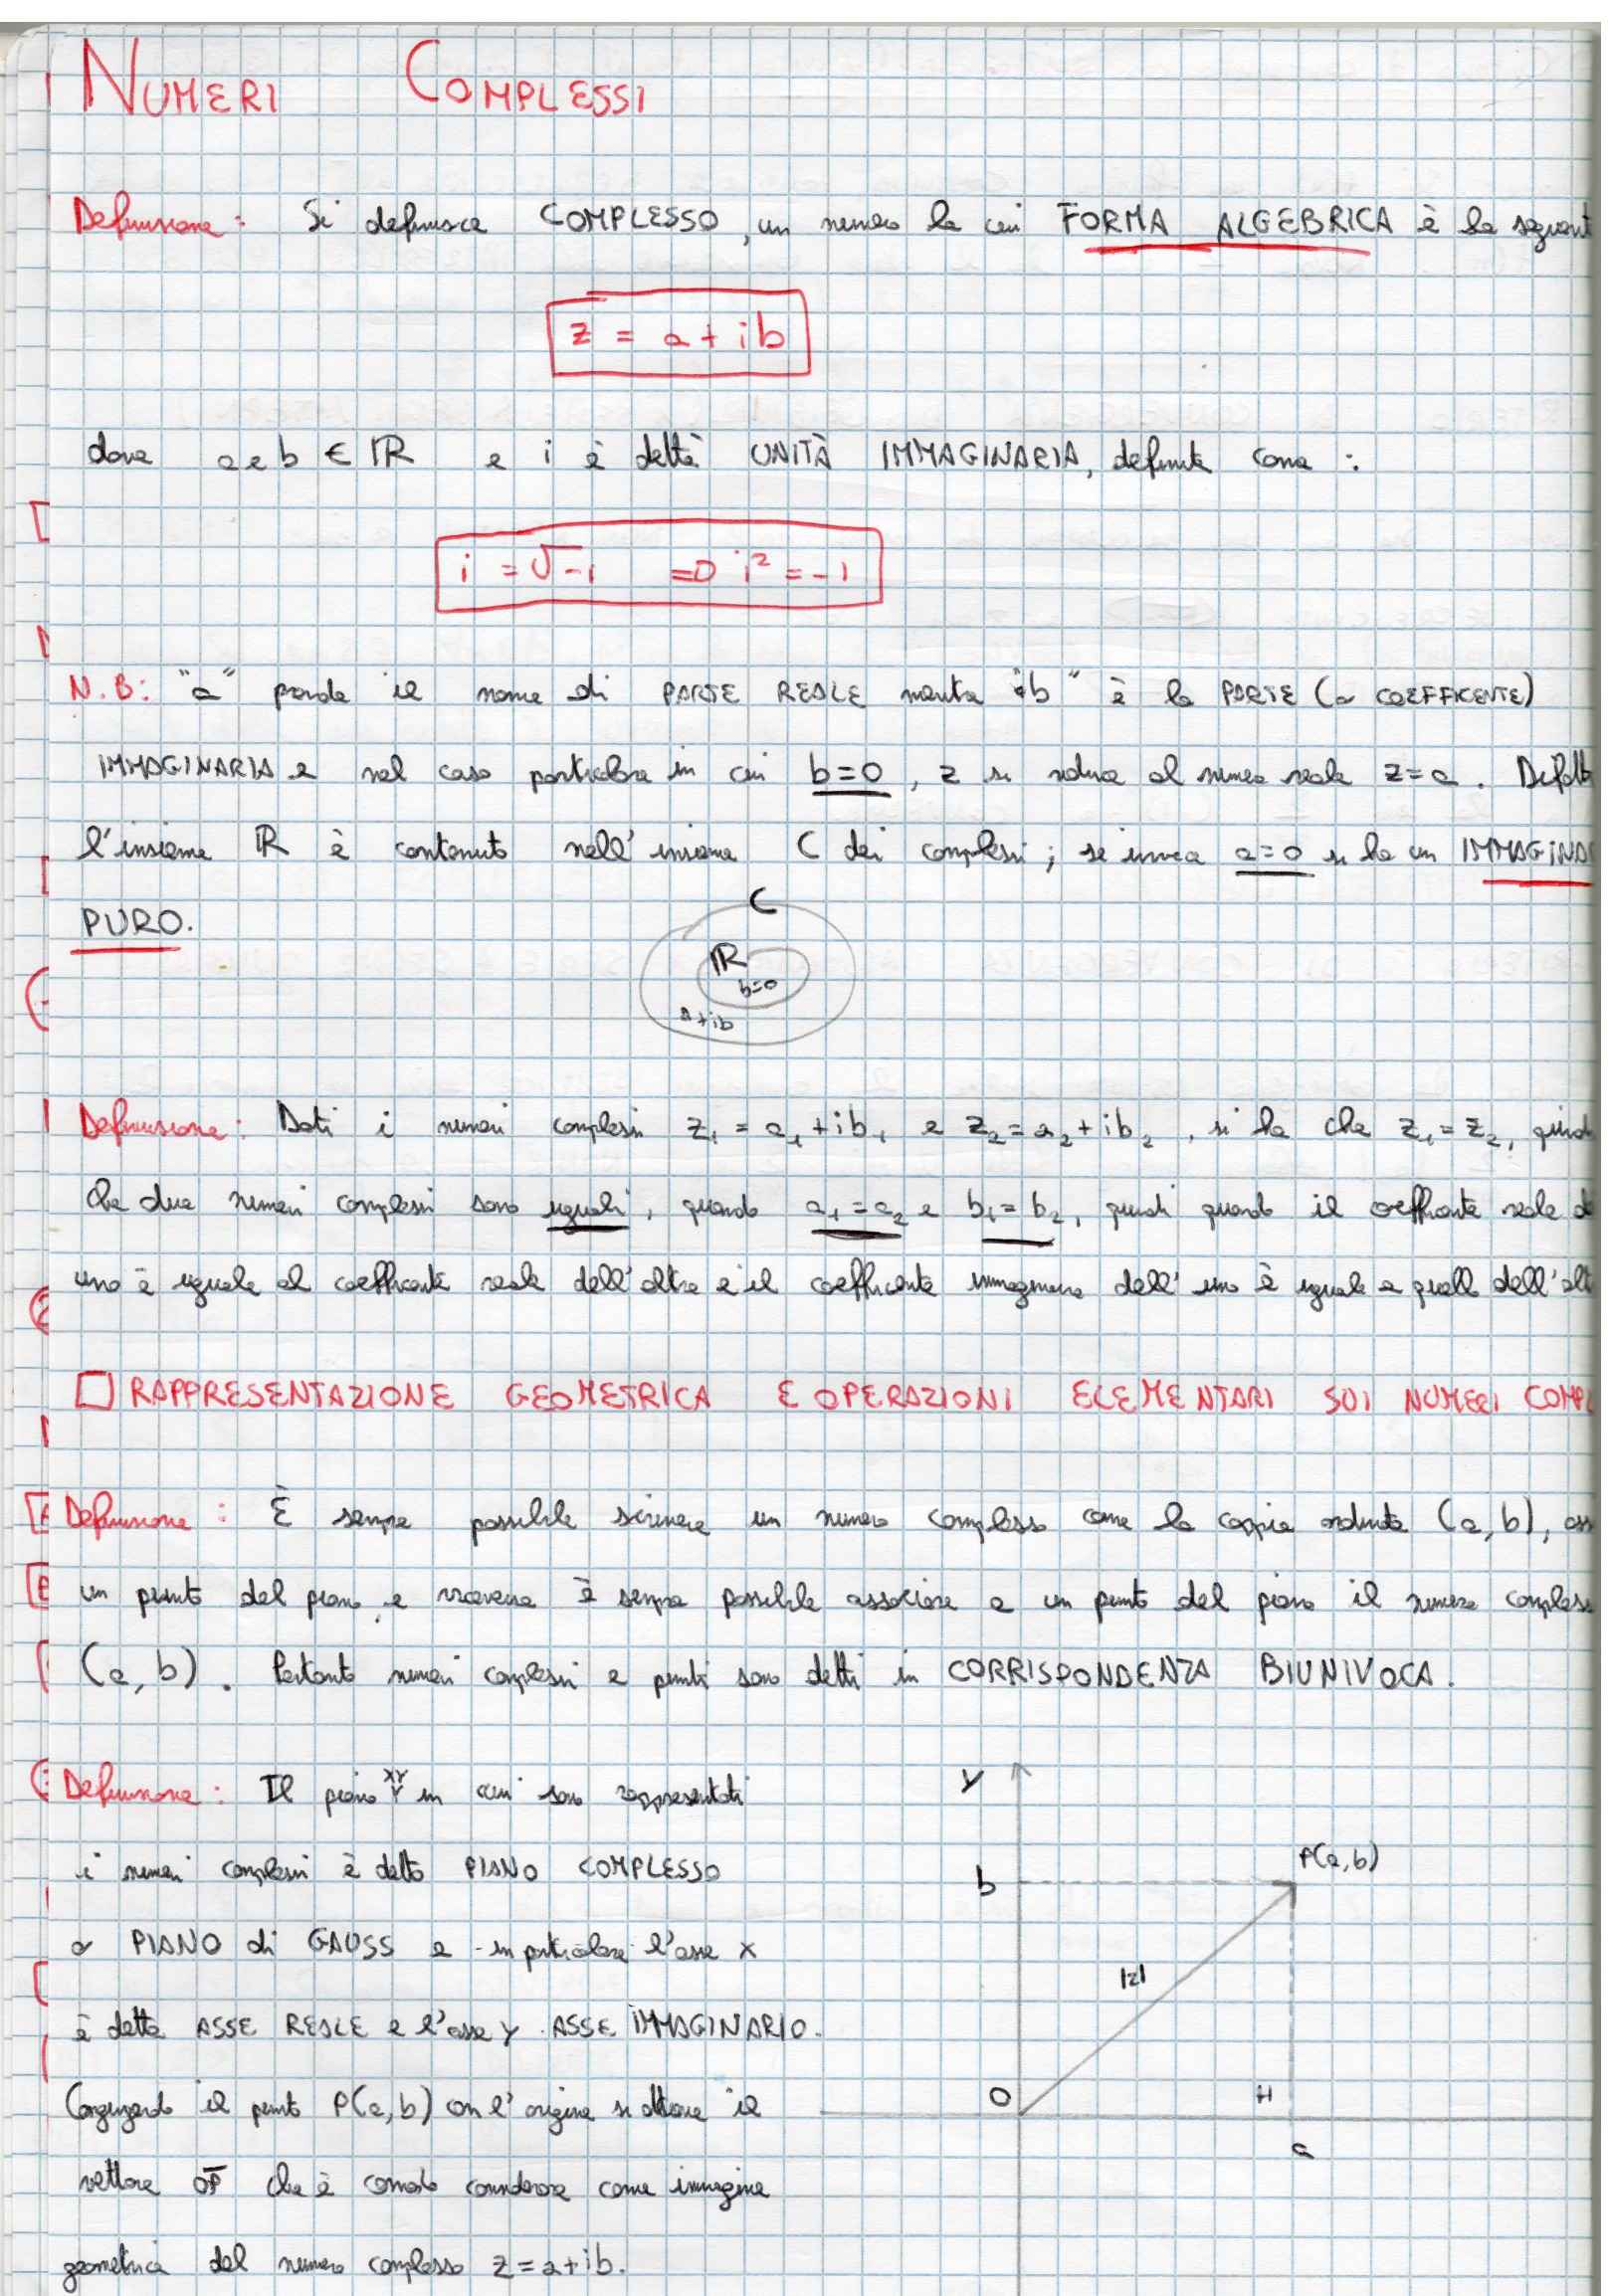 NUMERI COMPLESSI
Definizione: Si definisce COMPLESSO, un numero la cui FORMA ALGEBRICA è la seguent
z = a + ib
dove a e b ∈ ℝ e i è detta UNITÀ IMMAGINARIA, definita come :
i = √-1 => i² = -1
N.B: "a" prende il nome di PARTE REALE mentre "b" è la PARTE (o COEFFICENTE)
IMMAGINARIA e nel caso particolare in cui b=0, z si riduce al numero reale z=a. Difatt
l'insieme ℝ è contenuto nell'insieme C dei complessi; se invece a=0 si ha un IMMAGINAR
PURO.
C
ℝ
b=0
a+ib
Definizione: Dati i numeri complessi z₁ = a₁ + ib₁ e z₂ = a₂ + ib₂, si ha che z₁ = z₂, quind
che due numeri complessi sono uguali, quando a₁ = a₂ e b₁ = b₂, quindi quando il coefficente reale d
uno è uguale al coefficente reale dell'altro e il coefficente immaginario dell'uno è uguale a quell dell'alt
RAPPRESENTAZIONE GEOMETRICA E OPERAZIONI ELEMENTARI SUI NUMERI COMPL
Definizione: È sempre possibile scrivere un numero complesso come la coppia ordinata (a, b),
un punto del piano, e viceversa è sempre possibile associare a un punto del piano il numero comples
(a, b). Pertanto numeri complessi e punti sono detti in CORRISPONDENZA BIUNIVOCA.
Definizione: Il piano XY in cui sono rappresentati
i numeri complessi è detto PIANO COMPLESSO
o PIANO di GAUSS e in particolare l'asse x
è detta ASSE REALE e l'asse y ASSE IMMAGINARIO.
Congiungendo il punto P(a, b) con l'origine si ottiene il
vettore OP che è comodo considerare come immagine
geometrica del numero complesso z = a + ib.
Y
b
P(a, b)
|z|
O
H
a